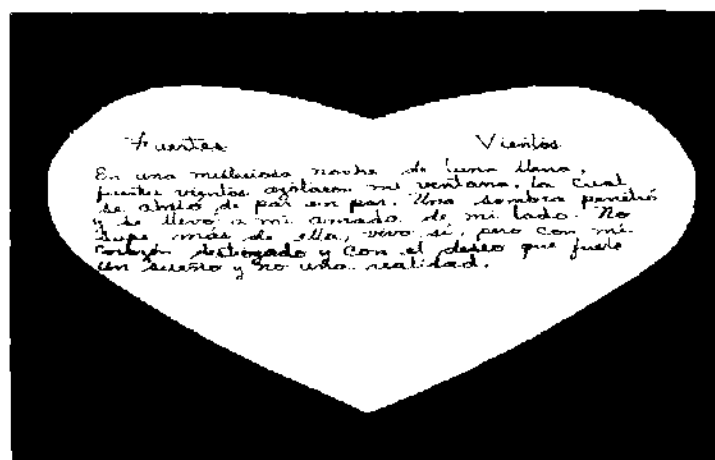 Fuertes Vientos
En una misteriosa noche de luna llena,
fuertes vientos azotaron mi ventana, la cual
se abrió de par en par. Una sombra penetró
y se llevo a mi amada de mi lado. No
supe más de ella, vivo sí, pero con mi
corazón destrozado y con el deseo que fuese
un sueño y no una realidad.